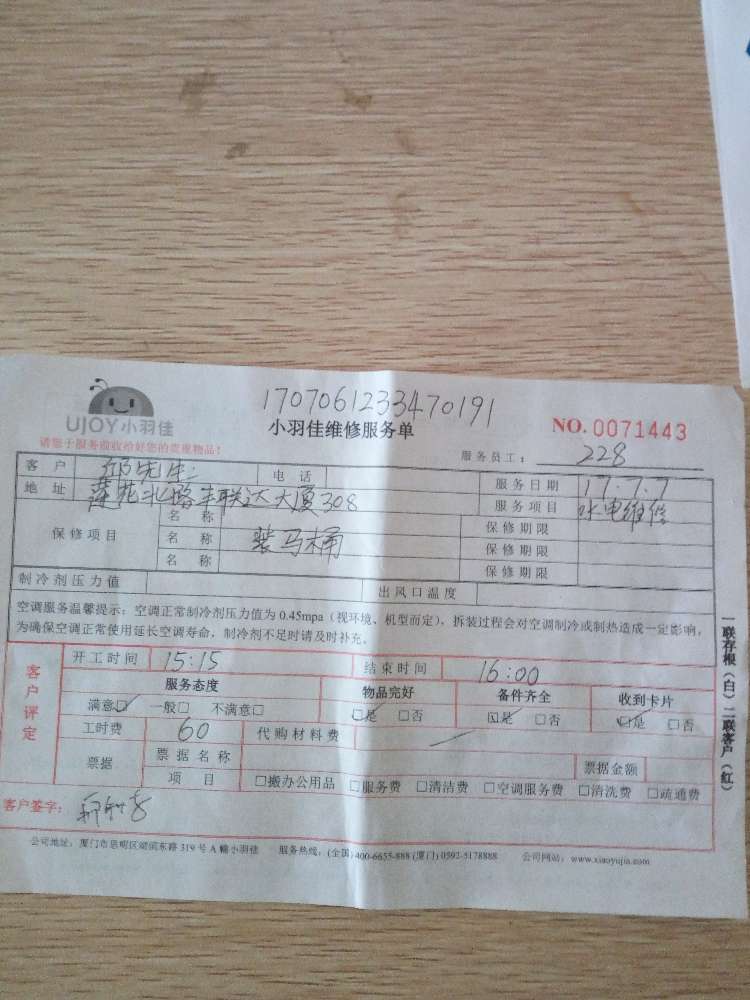 1707061233470191
UJOY小羽佳
小羽佳维修服务单
NO.0071443
请您于服务前收给好您的贵重物品!
服务员工: 228
客户 先生 电话 服务日期 17.7.7
地址 莲花北路丰联达大厦308 服务项目 水电维修
保修项目 名称 保修期限
名称 装马桶 保修期限
名称 保修期限
制冷剂压力值 出风口温度
空调服务温馨提示:空调正常制冷剂压力值为0.45mpa(视环境、机型而定),拆装过程会对空调制冷或制热造成一定影响,
为确保空调正常使用延长空调寿命,制冷剂不足时请及时补充。
客户评定
开工时间 15:15 结束时间 16:00
服务态度 物品完好 备件齐全 收到卡片
满意☑ 一般□ 不满意□ ☑是 □否 ☑是 □否 ☑是 □否
工时费 60 代购材料费 /
票据 票据名称 票据金额
项目 □搬办公用品 □服务费 □清洁费 □空调服务费 □清洗费 □疏通费
客户签字:
公司地址:厦门市思明区湖滨东路319号A幢小羽佳 服务热线:(全国)400-6655-888 (厦门)0592-5178888 公司网站:www.xiaoyujia.com
一联存根(白)二联客户(红)